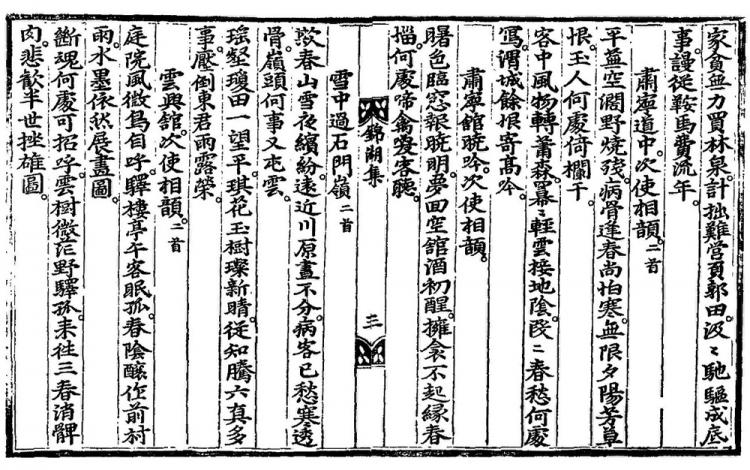 家貧無力買林泉。計拙難營負郭田。汲〻馳驅成底
事。謾從鞍馬費流年。
肅寧道中。次使相韻。二首
平蕪空濶野燒殘。病骨逢春尚怕寒。無限夕陽芳草
恨。玉人何處倚欄干。
客中風物轉蕭森。羃〻輕雲接地陰。段〻春愁何處
寫。渭城餘恨寄高吟。
肅寧館曉吟。次使相韻。
曙色臨窓報曉明。夢回空館酒初醒。擁衾不起緣春
惱。何處啼禽喚客聽。
錦湖集 三
雪中過石門嶺 二首
歘春山雪夜繽紛。遠近川原晝不分。病客已愁寒透
骨。嶺頭何事又屯雲。
瑤壑瓊田一望平。琪花玉樹璨新晴。從知騰六真多
事。壓倒東君雨露榮。
雲興館。次使相韻。二首
庭院風微鳥自呼。驛樓亭午客眠孤。春陰釀作前村
雨。水墨依然展畫圖。
斷魂何處可招呼。雲樹微茫野驛孤。來往三春消髀
肉。悲歌半世挫雄圖。